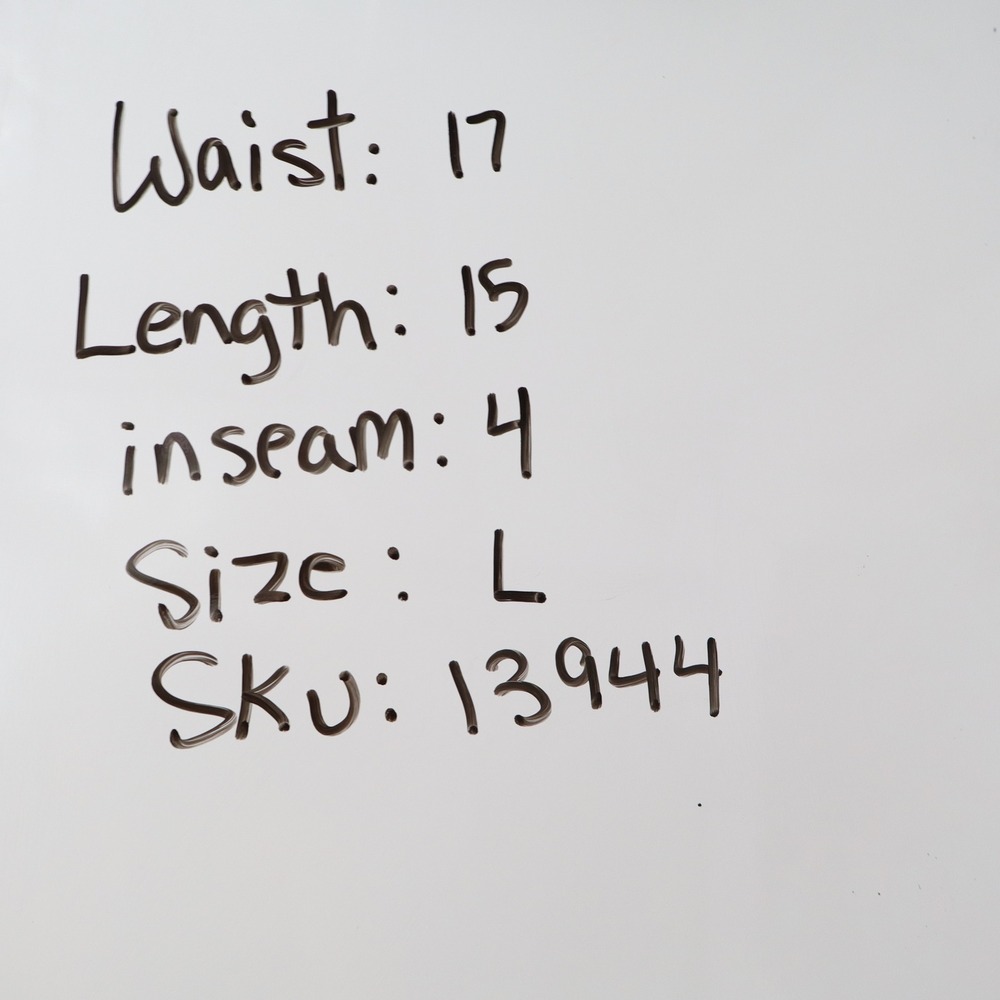 Waist: 17
Length: 15
inseam: 4
Size: L
Sku: 13944